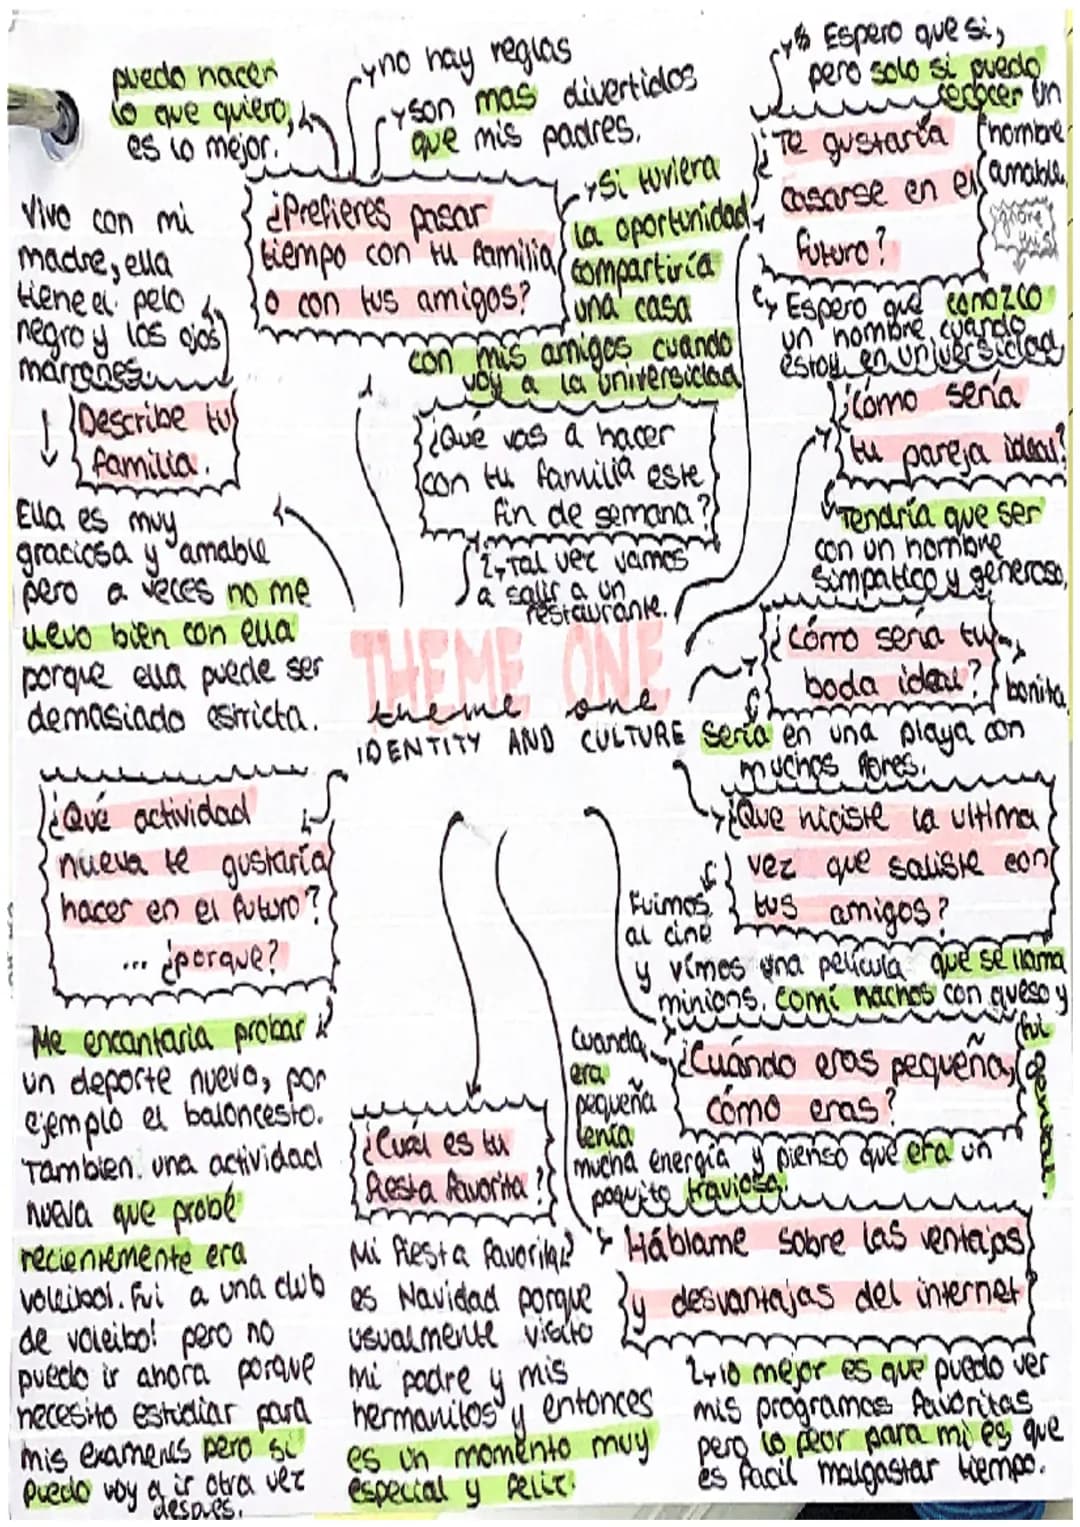 puedo hacer
lo que quiero,
es lo mejor.
no hay reglas
son mas divertidos
que mis padres.
¿Prefieres pasar
tiempo con tu familia
o con tus amigos?
Si tuviera
la oportunidad
compartiría
una casa
con mis amigos cuando
voy a la universidad
Espero que si,
pero solo si puedo
conocer un
hombre
amable
¿Te gustaría
casarse en el
futuro?
Espero que conozco
un hombre cuando
estoy en universidad
Vivo con mi
madre, ella
tiene el pelo
negro y los ojos
marrones.
Describe tu
familia.
Ella es muy
graciosa y amable
pero a veces no me
llevo bien con ella
porque ella puede ser
demasiado estricta.
¿Qué vas a hacer
con tu familia este
fin de semana?
Tal vez vamos
a salir a un
restaurante.
¿Cómo sería
tu pareja ideal?
Tendría que ser
con un hombre
simpatico y generoso,
¿Cómo sería tu
boda ideal?
bonita
Sería en una playa con
muchos flores.
THEME ONE
theme one
IDENTITY AND CULTURE
¿Qué actividad
nueva te gustaría
hacer en el futuro?
... ¿porque?
Me encantaria probar
un deporte nuevo, por
ejemplo el baloncesto.
Tambien. una actividad
nueva que probé
recientemente era
voleibol. Fui a una club
de voleibol pero no
puedo ir ahora porque
necesito estudiar para
mis examenes pero si
puedo voy a ir otra vez
despues.
¿Que hiciste la ultima
vez que saliste con
tus amigos?
Fuimos
al cine
y vimos una película que se llama
minions. Comí nachos con queso y
fui
genial.
¿Cuándo eras pequeña,
cómo eras?
Cuando
era
pequeña
tenía
mucha energía y pienso que era un
poquito traviosa.
¿Cuál es tu
fiesta favorita?
Mi fiesta favorita
es Navidad porque
usualmente visito
mi padre y mis
hermanitos y entonces
es un momento muy
especial y feliz.
Háblame sobre las ventajas
y desvantajas del internet
lo mejor es que puedo ver
mis programas favoritas
pero lo peor para mi es que
es facil malgastar tiempo.